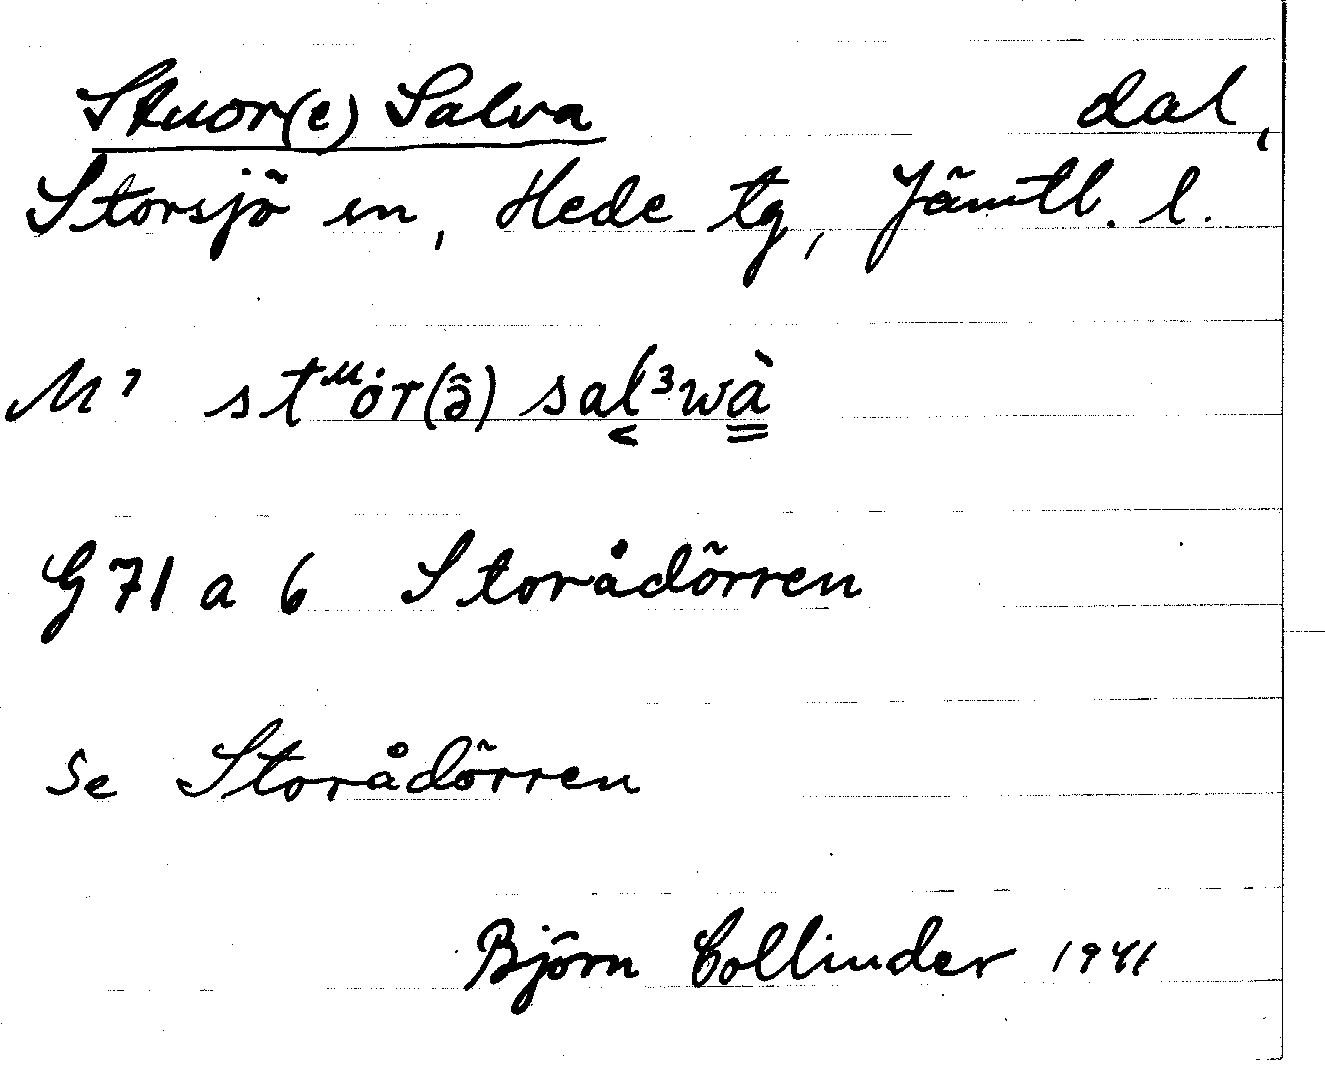 Stuor(e) Salva dal,
Storsjö sn, Hede tg, Jämtl. l.
M7 stᵘȯr(ə̂) sal³wà
G 71 a 6 Storådörren
se Storådörren
Björn Collinder 1941